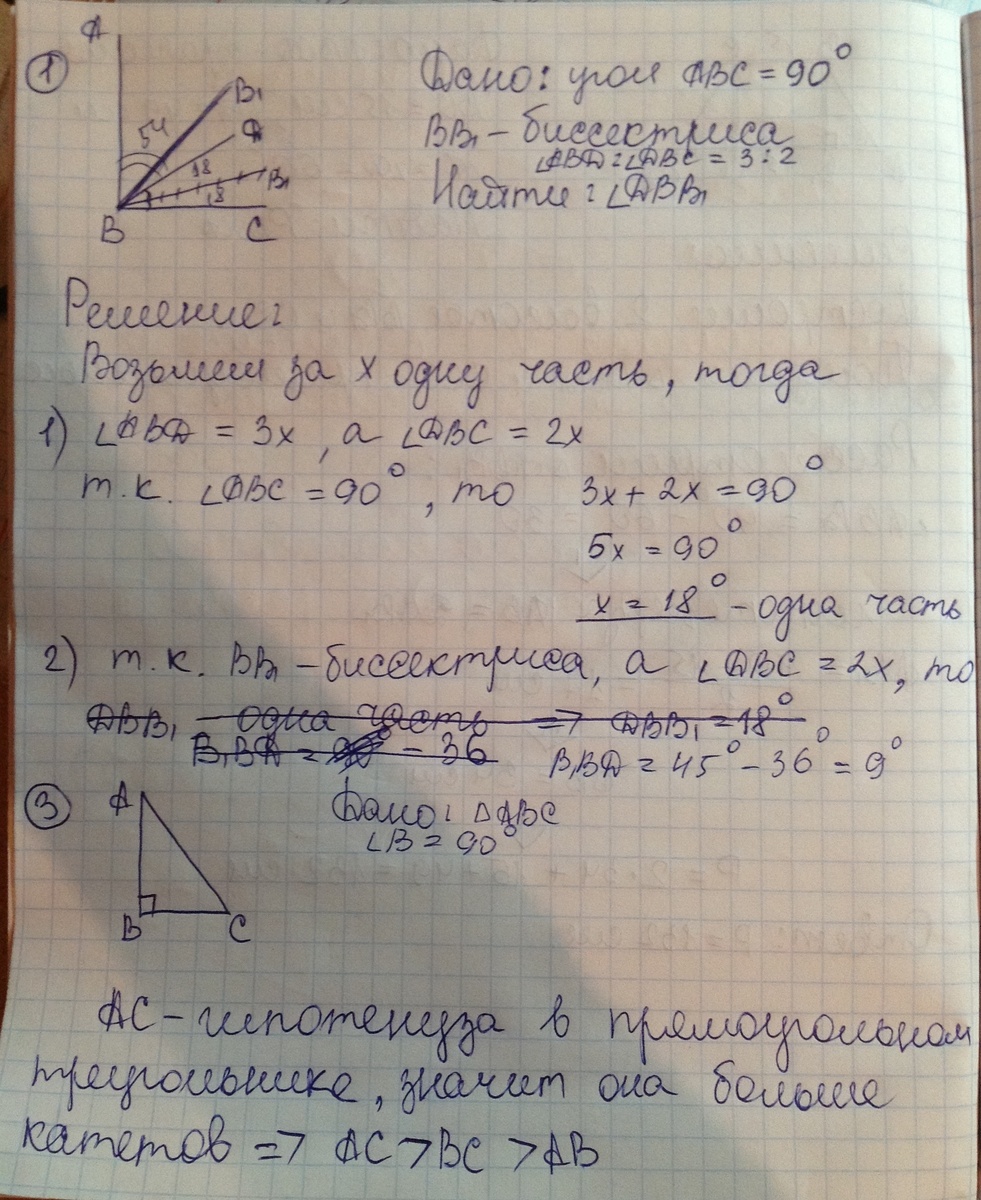 1
A
B1
54
D
18
B1
18
B
C
Дано: угол ABC = 90°
BB1 – биссектриса
∠ABD : ∠DBC = 3 : 2
Найти : ∠DBB1
Решение:
Возьмем за x одну часть, тогда
1) ∠ABD = 3x, а ∠DBC = 2x
т.к. ∠ABC = 90°, то 3x + 2x = 90°
5x = 90°
x = 18° – одна часть
2) т.к. BB1 – биссектриса, а ∠DBC = 2x, то
DBB1 – одна часть => DBB1 = 18°
B1BD = 90° – 36 B1BD = 45° – 36° = 9°
3
A
B
C
Дано: △ABC
∠B = 90°
AC – гипотенуза в прямоугольном
треугольнике, значит она больше
катетов => AC > BC > AB